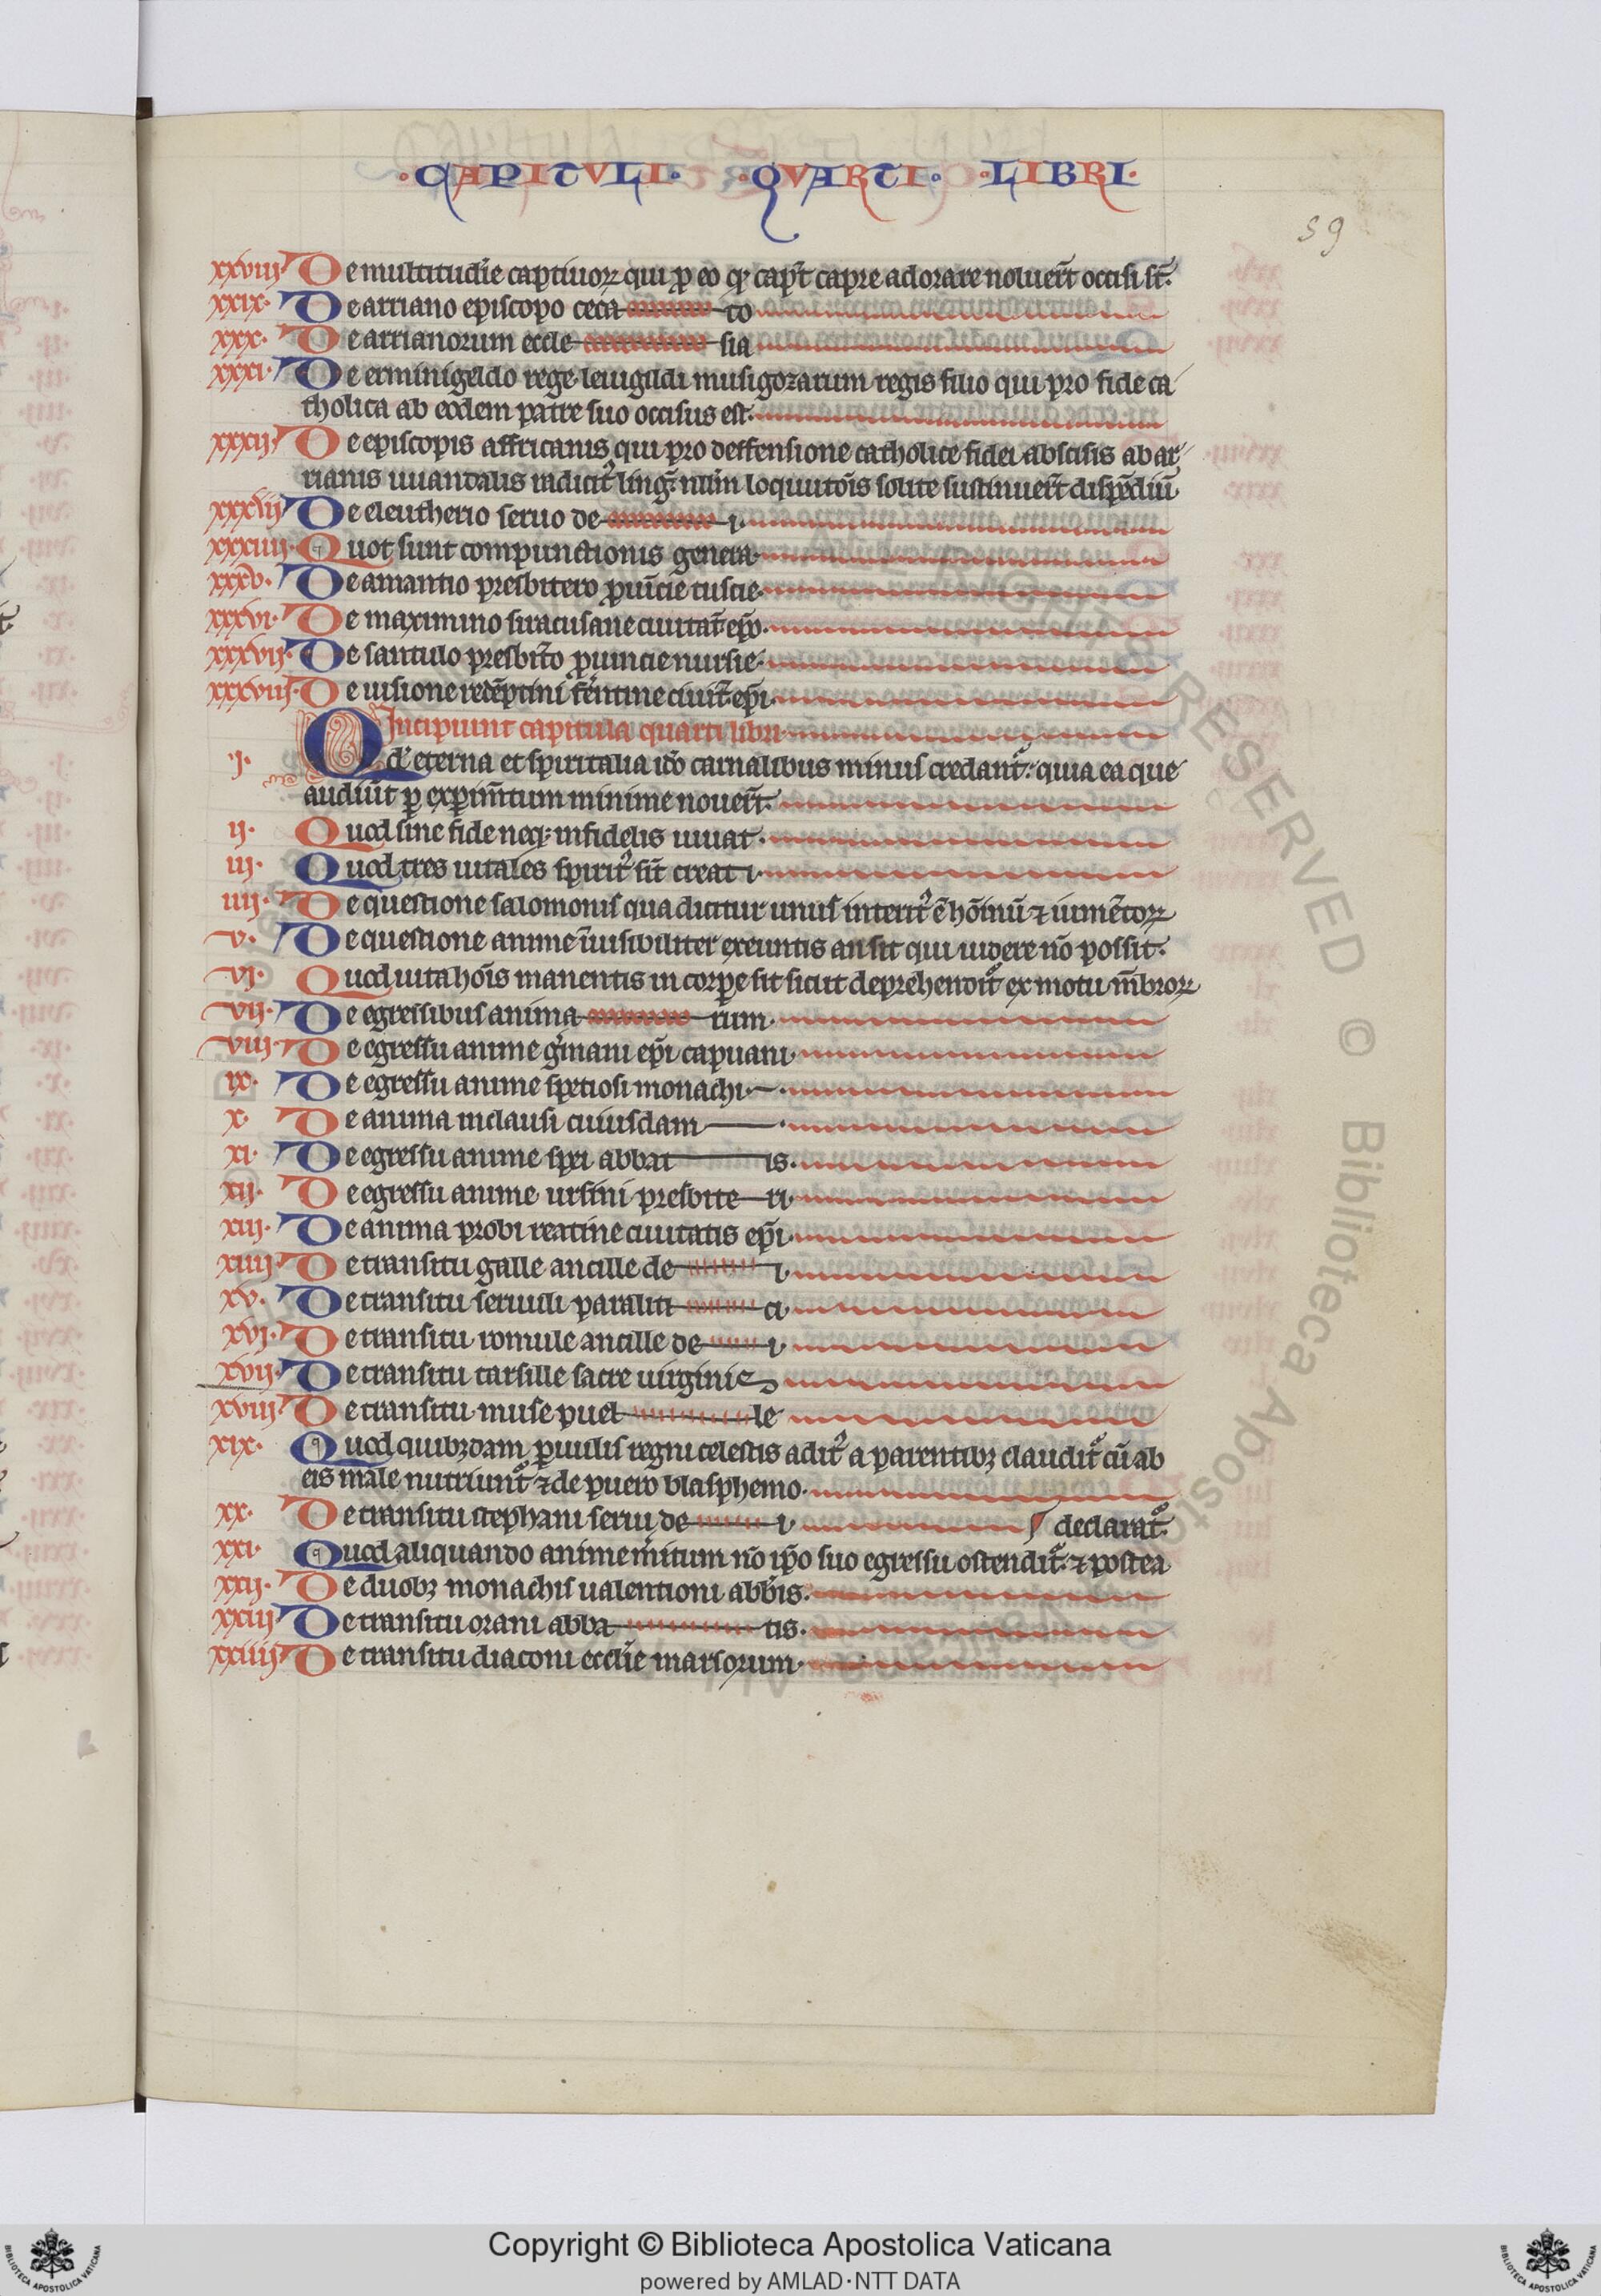 ·CAPITULI· ·QVARTI· ·LIBRI·
59
xxviii De multitudı̅e captiuoꝝ qui ꝓ eo ꝙ cap̅t capre adorare noluer̅t occisi st̅.
xxix· De arriano episcopo ceca to
xxx· De arrianorum eccle sia
xxxi· De erminigeldo rege leuigildi uusigozarum regis filio qui pro fide ca
tholica ab eodem patre suo occisus est·
xxxii· De episcopis affricanis qui pro deffensione catholice fidei abscisis ab ar
rianis uuandalis
xxxiii De eleutherio seruo de i·
xxxiiii· Quot sunt compunctionis genera·
xxxv· De amantio presbitero ꝓuı̅cie tuscie·
xxxvi· De maximino siracusane ciuitat̅ ep̅o·
xxxvii· De santulo presbit̅o ꝓuincie nursie·
xxxviii· De uisione rede̅ptini fe̅rı̅tine ciuit̅ ep̅i·
Incipiunt capitula quarti libri·
i· Qd̕ eterna et spiritalia iō a carnalibus minus credant᷑· quia ea que
audiu̅t ꝑ exp̱im̅tum minime nouer̅t·
ii· Quod sine fide neqꝫ infidelis uiuat·
iii· Quod tres uitales spirit᷒ sı̅t creat i·
iiii· De questione salomonis qua dicitur unus interit᷒ ē ho̅inu̅ ⁊ iume̅toꝝ
v· De questione anime ı̅uisibiliter exeuntis an sit qui uidere no̅ possit·
vi· Quod uita ho̅is manentis in corꝑe sit sicut deprehendit᷑ ex motu m̅broꝝ
vii· De egressibus anima rum·
viii· De egressu anime g̕mani ep̅i capuani·
ix· De egressu anime spetiosi monachi·
x· De anima inclausi cuiusdam ·
xi· De egressu anime spei abbat is·
xii· De egressu anime ursini presbite ri·
xiii· De anima probi reatine ciuitatis ep̅i·
xiiii· De transitu galle ancille de i·
xv· De transitu seruuli paraliti ci·
xvi· De transitu romule ancille de i·
xvii· De transitu tarsille sacre uirginis
xviii· De transitu muse puel le
xix· Quod quibꝫdam ꝑuulis regni celestis adit᷒ a parentibꝫ claudit᷑ cu̅ ab
eis male nutriunt᷑ ⁊ de puero blasphemo·
xx· De transitu stephani serui de i· declarat᷑·
xxi· Quod aliquando anime m̕itum no̅ ip̅o suo egressu ostendit᷑· ⁊ postea
xxii· De duobꝫ monachis ualentioni abb̅is·
xxiii De transitu orani abba tis·
xxiiii De transitu diaconi eccl̅ie marsorum·
RESERVED © Biblioteca Apostolica Vaticana
Copyright © Biblioteca Apostolica Vaticana
powered by AMLAD·NTT DATA
BIBLIOTECA APOSTOLICA VATICANA
BIBLIOTECA APOSTOLICA VATICANA